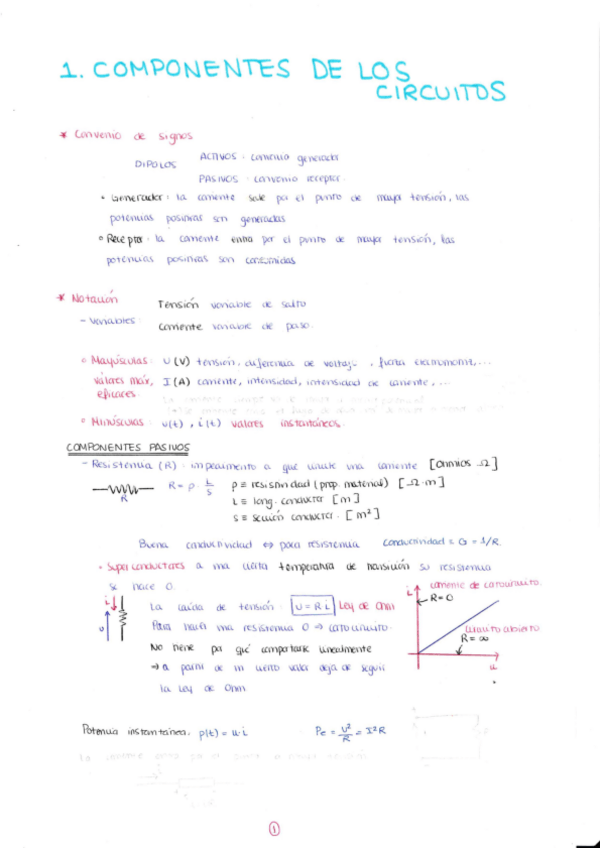 1. COMPONENTES DE LOS
CIRCUITOS
* Convenio de signos
DIPOLOS
ACTIVOS: convenio generador
PASIVOS: convenio receptor.
• Generador: la corriente sale por el punto de mayor tensión, las
potencias positivas son generadas
• Receptor: la corriente entra por el punto de mayor tensión, las
potencias positivas son consumidas
* Notación
- Variables:
Tensión variable de salto
Corriente variable de paso.
• Mayúsculas: U (V) tensión, diferencia de voltaje, fuerza electromotriz,...
valores máx, I (A) corriente, intensidad, intensidad de corriente,...
eficaces.
• Minúsculas: u(t), i(t) valores instantáneos.
COMPONENTES PASIVOS
- Resistencia (R): impedimento a que circule una corriente [ohmios Ω]
R
R = ρ · L/S
ρ ≡ resistividad (prop. material) [Ω·m]
L ≡ long. conductor [m]
S ≡ sección conductor. [m²]
Buena conductividad ⇔ poca resistencia
Conductividad = G = 1/R.
• Superconductores a una cierta temperatura de transición su resistencia
se hace 0.
i
u
La caída de tensión: U = R i Ley de Ohm
Para hacer una resistencia 0 ⇒ cortocircuito.
No tiene por qué comportarse linealmente
⇒ a partir de un cierto valor deja de seguir
la Ley de Ohm
i
corriente de cortocircuito.
R=0
circuito abierto
R = ∞
u
Potencia instantánea. p(t) = u·i
Pe = U²/R = I²R
1